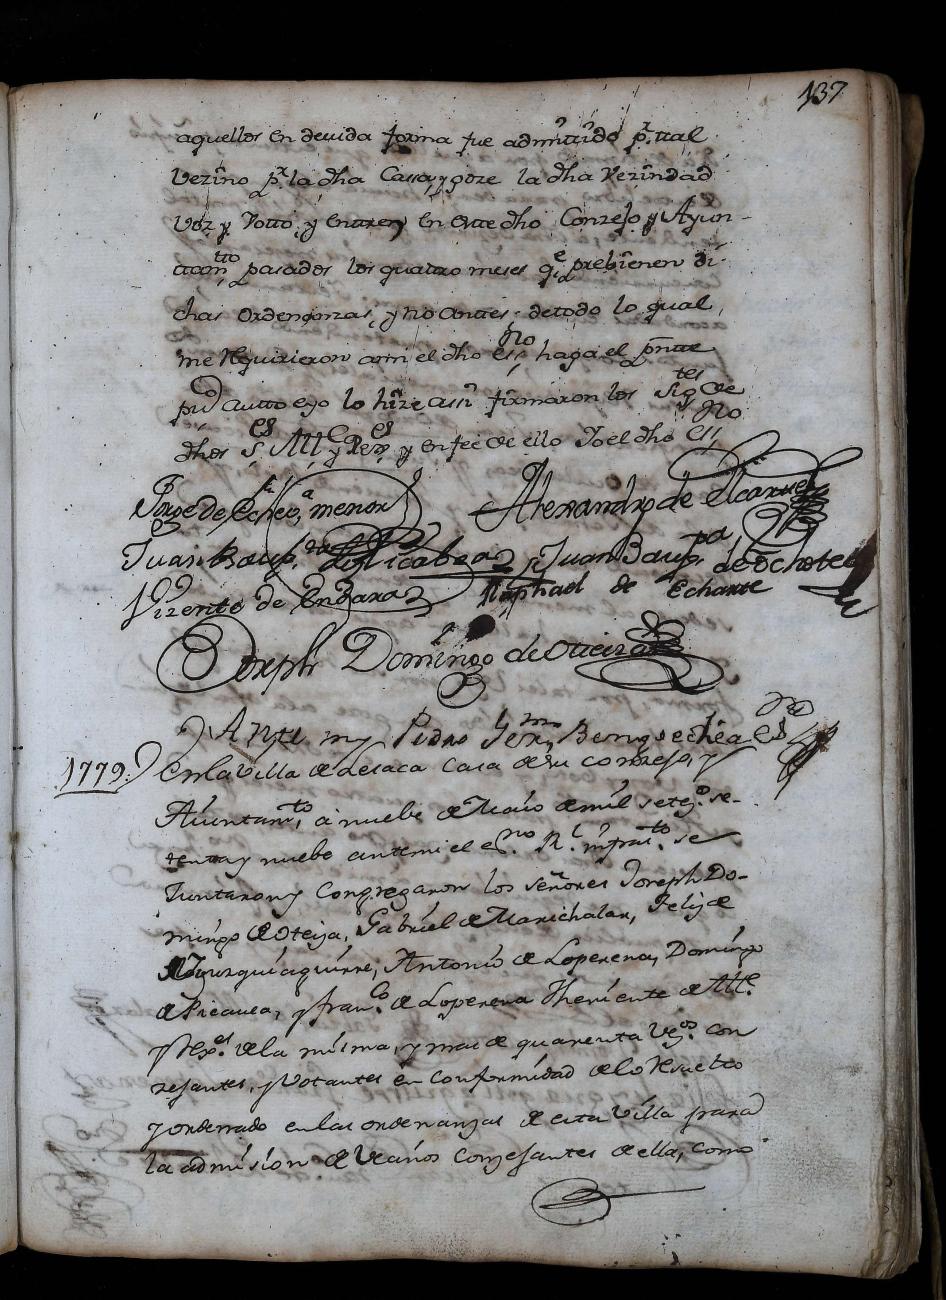 137
aquellos en devida forma fue admittido pr. ttal
Vezino pr. la dha Cassa, y goze la dha Vezindad
voz y Votto, y entren en este dho Conzejo y Ayun-
ttamtto. pasados los quatro meses qe. prebienen di-
chas ordenanzas, y no antes. de todo lo qual
me Requirieron a mi el dho essno. haga el presntte
autto e yo lo hize assi firmaron los Sigtes. de
dhos Ses. Alle. y Rexes. y en fee de ello Yo el dho essno
Jorge de Echeva. menor
Alexandro de
Juan Bauptta. de y Juan Baupta. de Ochotec
Vizente de Endara
Raphael de Echarte
Joseph Domingo de Oteiza
Ante my Pedro Germn. Bengoechea Esno
1779.
En la Villa de Lesaca Casa de su conzejo, y
Aiuntamto. á nuebe de Maio de mil setezs. se-
tenta y nuebe ante mi el esno. Rl. infrato. se
Juntaron y Congregaron los señores Joseph Do-
mingo de Oteiza, Gabriel de Marichalar, Felix de
Antonio de Loperena, Domingo
de Picavea, y Franco. de Loperena Theniente de Alle.
y Rexs. de la misma, y mas de quarenta Vezs. con
zejantes, y Votantes en Conformidad de lo Resuelto
y ordenado en las ordenanzas de esta Villa para
la admision de Vezinos Conzejantes de ella, como